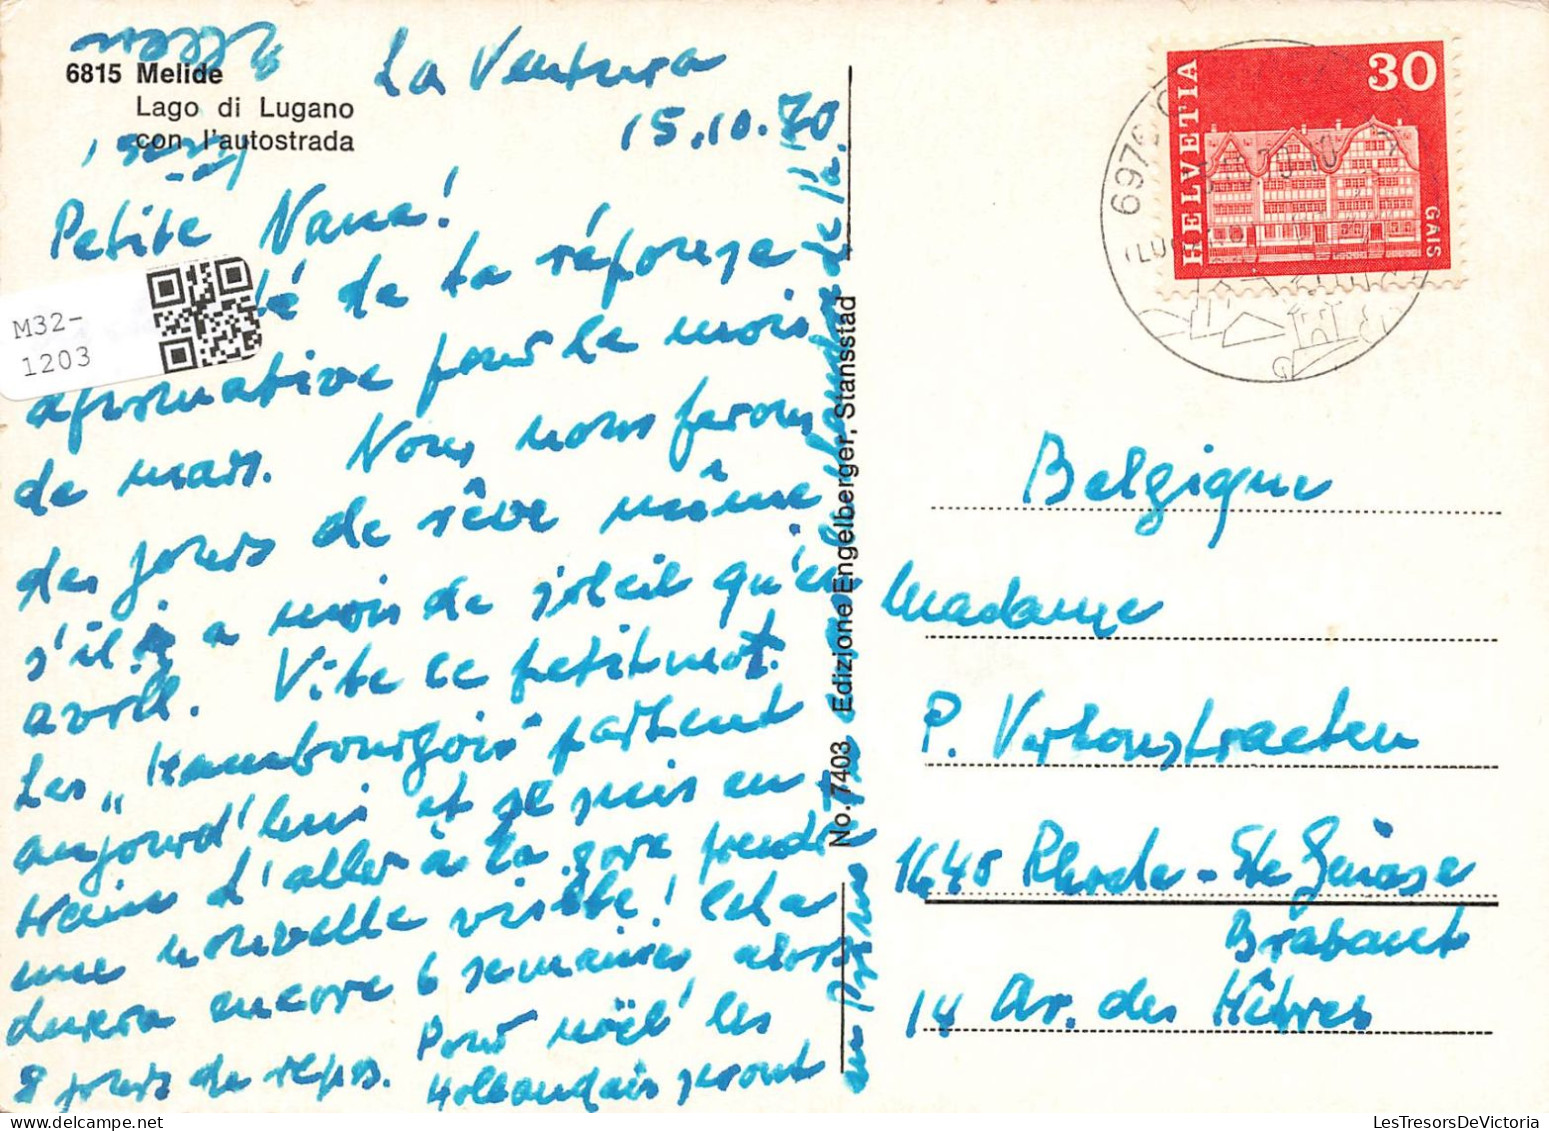 6815 Melide
Lago di Lugano
con l'autostrada
La Ventura
15.10.70
Petite Nane!
de ta réponse
afirmative pour le mois
de mars. Nous nous ferons
des jours de rêve même
s'il y a mois de soleil qu'en
avril. Vite ce petit mot.
Les „Hambourgois" partent
aujourd'hui et je suis en
train d'aller à la gare prendre
une nouvelle visite! Cela
durera encore 6 semaines alors
8 jours de repos. Pour noël les
Hollandais seront
M32-
1203
No. 7403 Edizione Engelberger, Stansstad
HELVETIA
30
GAIS
Belgique
Madame
P. Verhonstraeten
1640 Rhode-Ste Genèse
Brabant
14 Av. des Hêtres
LesTresorsDeVictoria